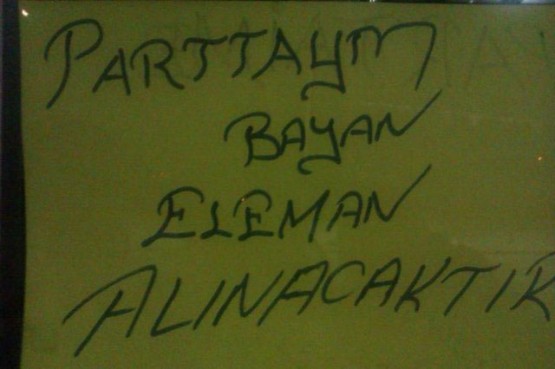 PARTTAYM
BAYAN
ELEMAN
ALINACAKTIR